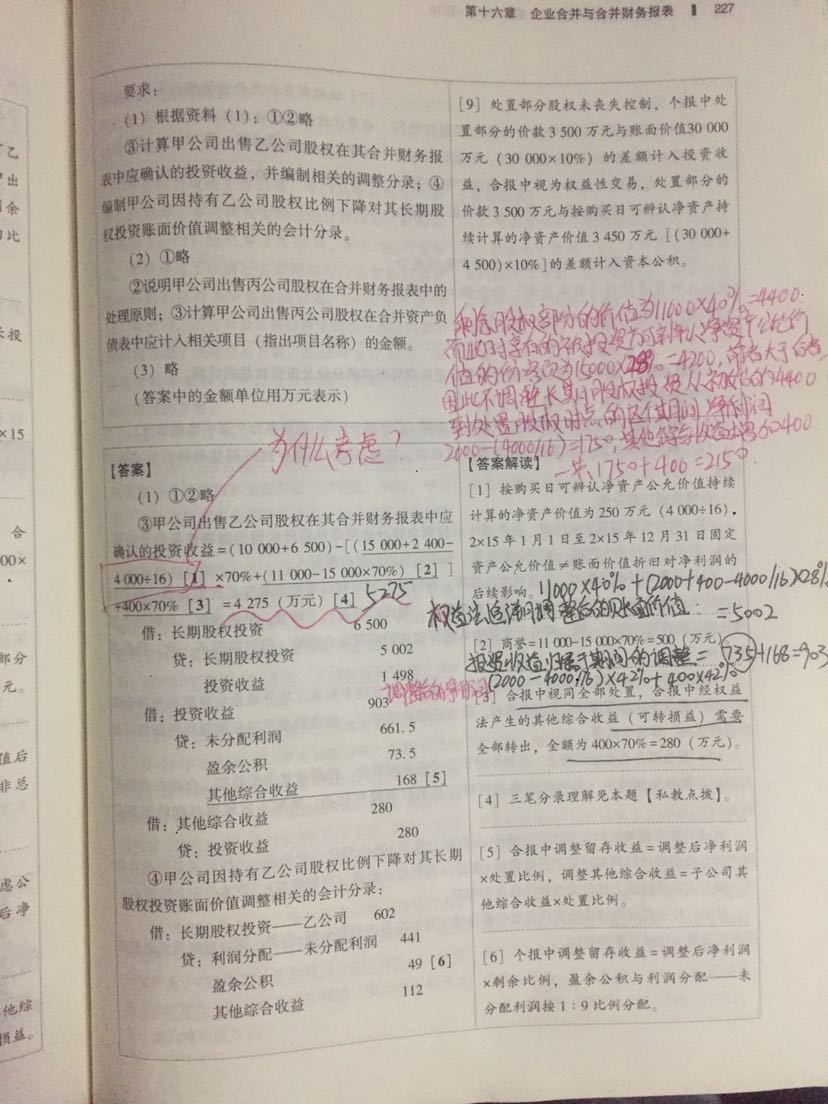 第十六章 企业合并与合并财务报表 227
要求：
（1）根据资料（1）：①②略
③计算甲公司出售乙公司股权在其合并财务报
表中应确认的投资收益，并编制相关的调整分录；④
编制甲公司因持有乙公司股权比例下降对其长期股
权投资账面价值调整相关的会计分录。
（2）①略
②说明甲公司出售丙公司股权在合并财务报表中的
处理原则；③计算甲公司出售丙公司股权在合并资产负
债表中应计入相关项目（指出项目名称）的金额。
（3）略
（答案中的金额单位用万元表示）
[9] 处置部分股权未丧失控制，个报中处
置部分的价款 3 500 万元与账面价值30 000
万元（30 000×10%）的差额计入投资收
益，合报中视为权益性交易，处置部分的
价款 3 500 万元与按购买日可辨认净资产持
续计算的净资产价值 3 450 万元 [（30 000+
4 500）×10%] 的差额计入资本公积。
剩余股权部分的价值为11000×40%=4400
而此时享有的被投资方可辨认净资产公允价
值的份额为15000×28%=4200，前者大于后者
因此不调整长期股权投资
到处置股权时点的这个期间净利润
2000-(4000/16)=1750，其他综合收益增加400
一共1750+400=2150
为什么考虑？
【答案】
（1）①②略
③甲公司出售乙公司股权在其合并财务报表中应
确认的投资收益=（10 000+6 500）-[（15 000+2 400-
4 000÷16）[1] ×70%+（11 000-15 000×70%）[2] ]
+400×70% [3] =4 275（万元）[4] 5275
借：长期股权投资 6 500
贷：长期股权投资 5 002
投资收益 1 498
借：投资收益 903
贷：未分配利润 661.5
盈余公积 73.5
其他综合收益 168 [5]
借：其他综合收益 280
贷：投资收益 280
④甲公司因持有乙公司股权比例下降对其长期
股权投资账面价值调整相关的会计分录：
借：长期股权投资——乙公司 602
贷：利润分配——未分配利润 441
盈余公积 49 [6]
其他综合收益 112
调整后的净利润
【答案解读】
[1] 按购买日可辨认净资产公允价值持续
计算的净资产价值为 250 万元（4 000÷16），
2×15 年 1 月 1 日至 2×15 年 12 月 31 日固定
资产公允价值≠账面价值折旧对净利润的
后续影响。
11000×40%+(2000+400-4000/16)×28%
权益法追溯调整后的账面价值： =5002
[2] 商誉=11 000-15 000×70%=500（万元）
投资收益归属于期间的调整= 735+168=903
(2000-4000/16)×42%+400×42%
[3] 合报中视同全部处置，合报中经权益
法产生的其他综合收益（可转损益）需要
全部转出，金额为 400×70%=280（万元）。
[4] 三笔分录理解见本题【私教点拨】。
[5] 合报中调整留存收益=调整后净利润
×处置比例，调整其他综合收益=子公司其
他综合收益×处置比例。
[6] 个报中调整留存收益=调整后净利润
×剩余比例，盈余公积与利润分配——未
分配利润按 1：9 比例分配。